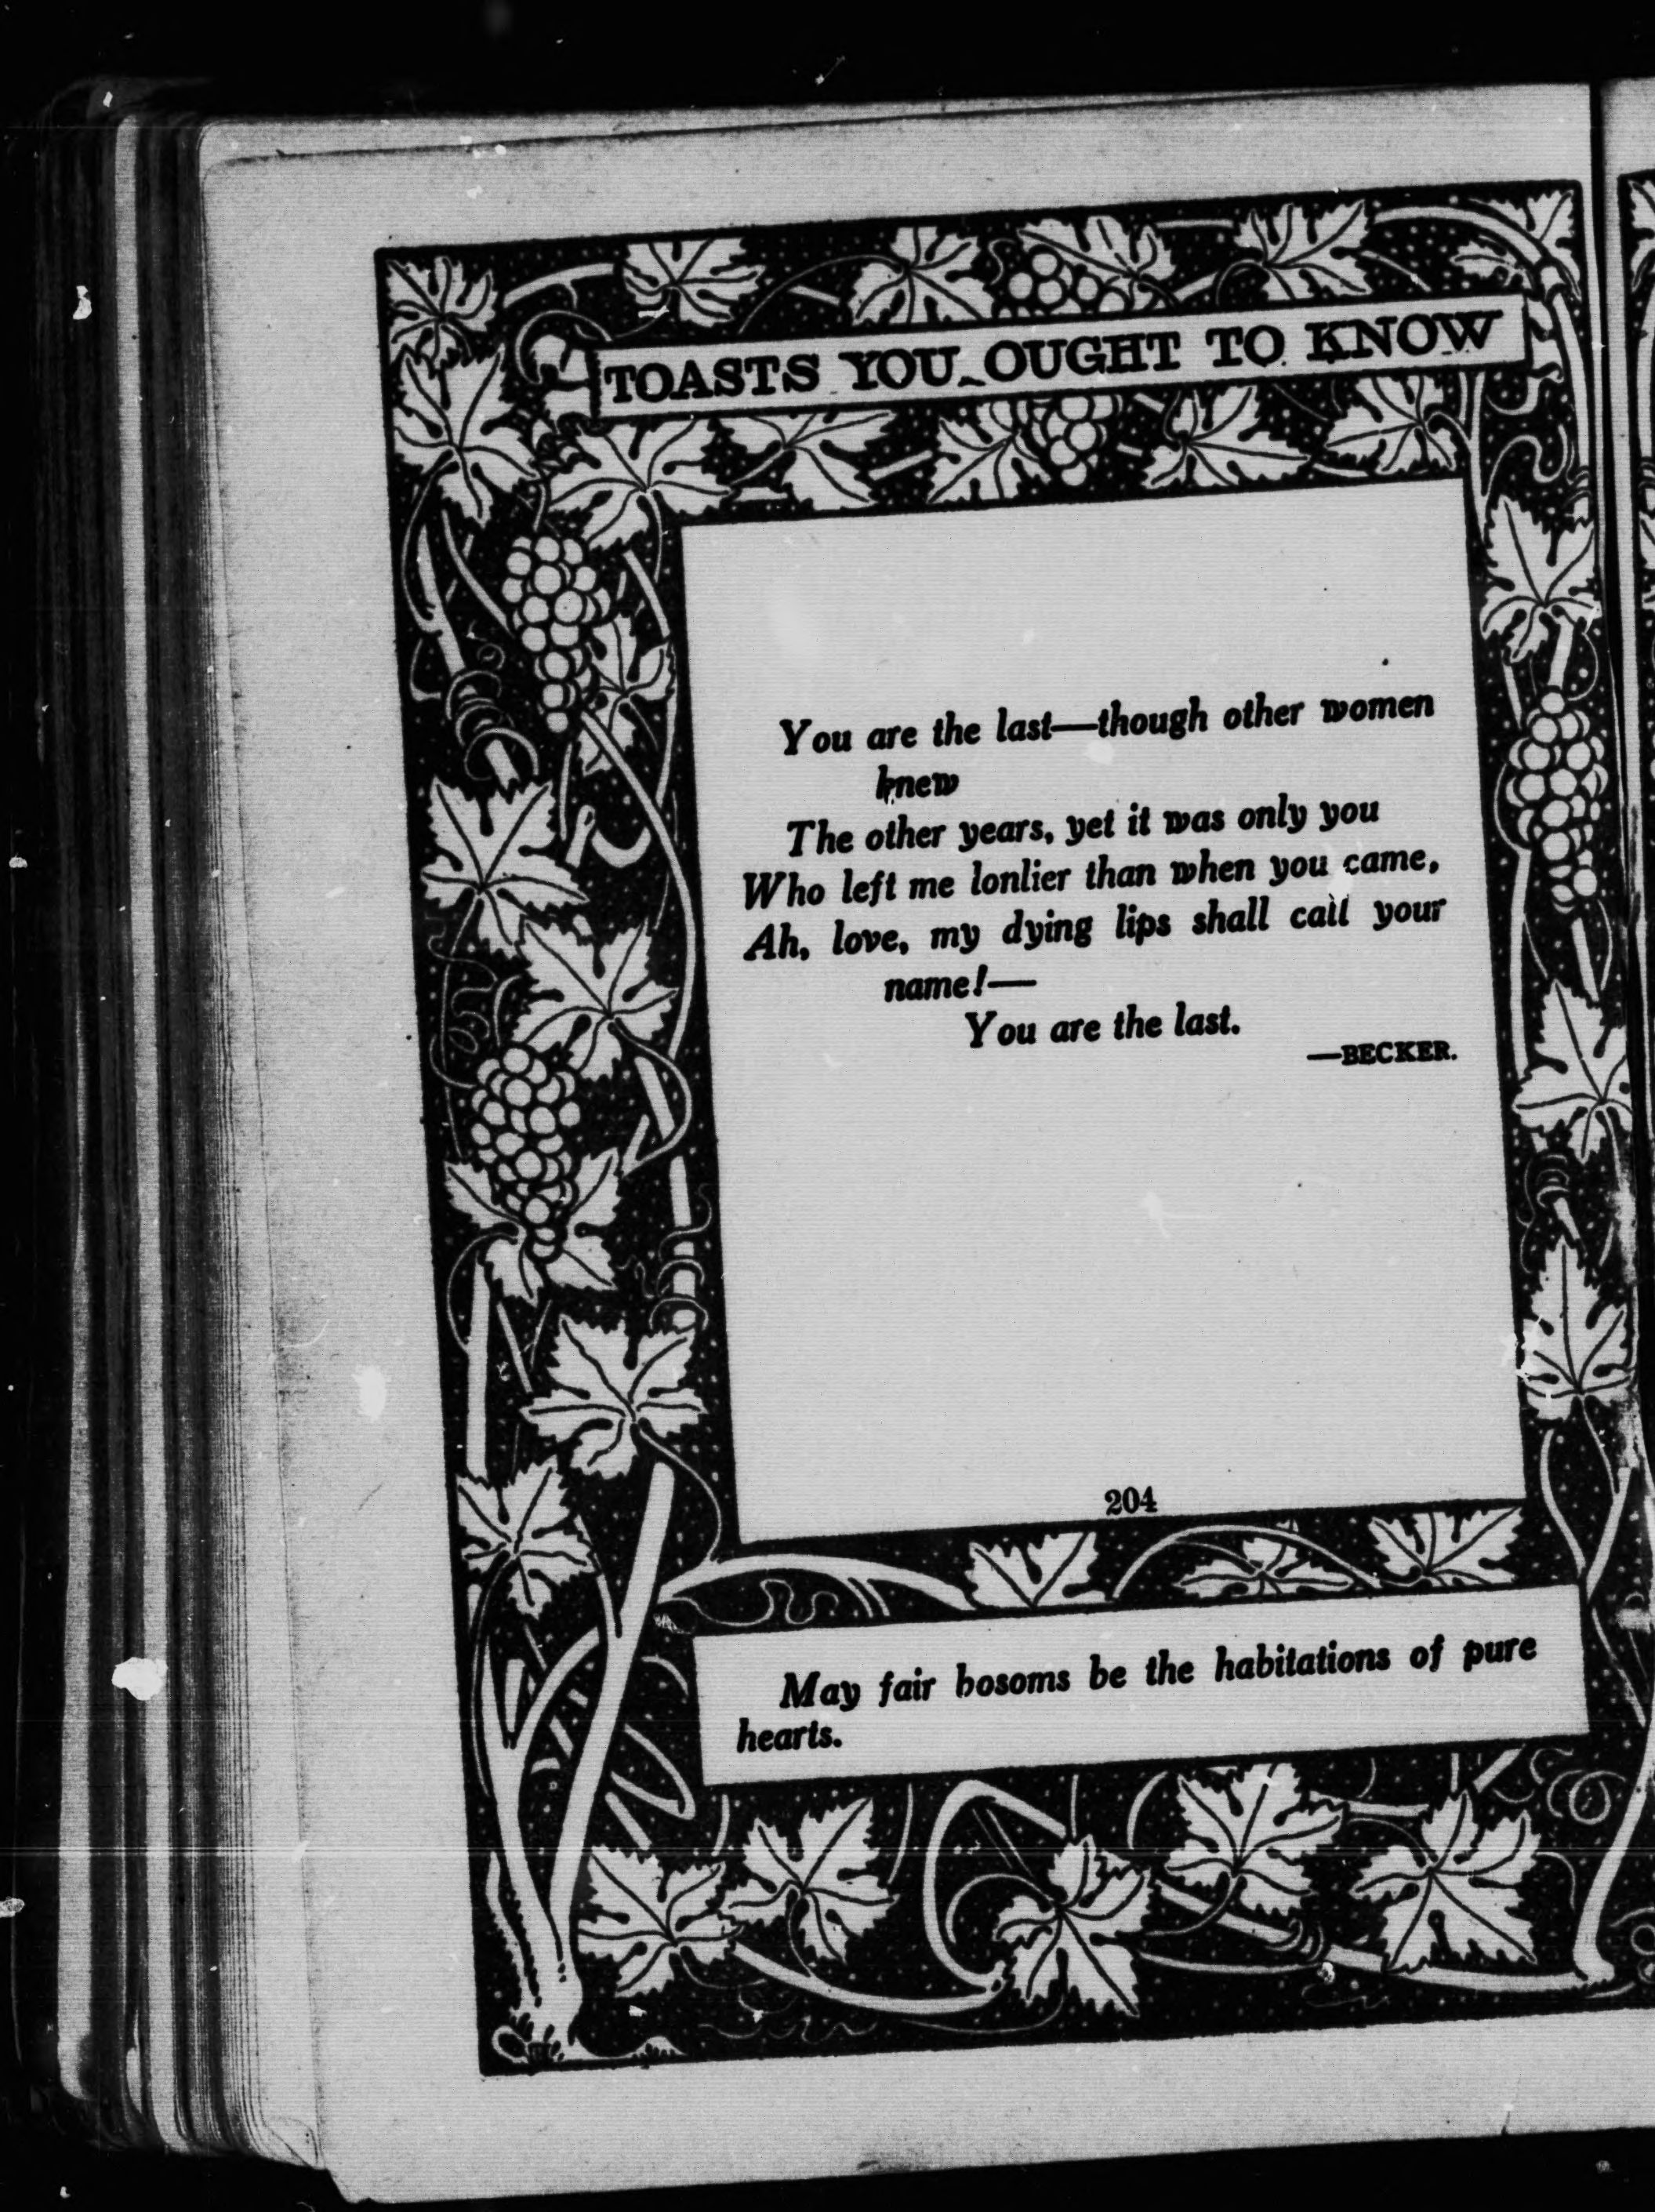 TOASTS YOU OUGHT TO KNOW
You are the last—though other women
knew
The other years, yet it was only you
Who left me lonlier than when you came,
Ah, love, my dying lips shall call your
name!—
You are the last.
—BECKER.
204
May fair bosoms be the habitations of pure
hearts.